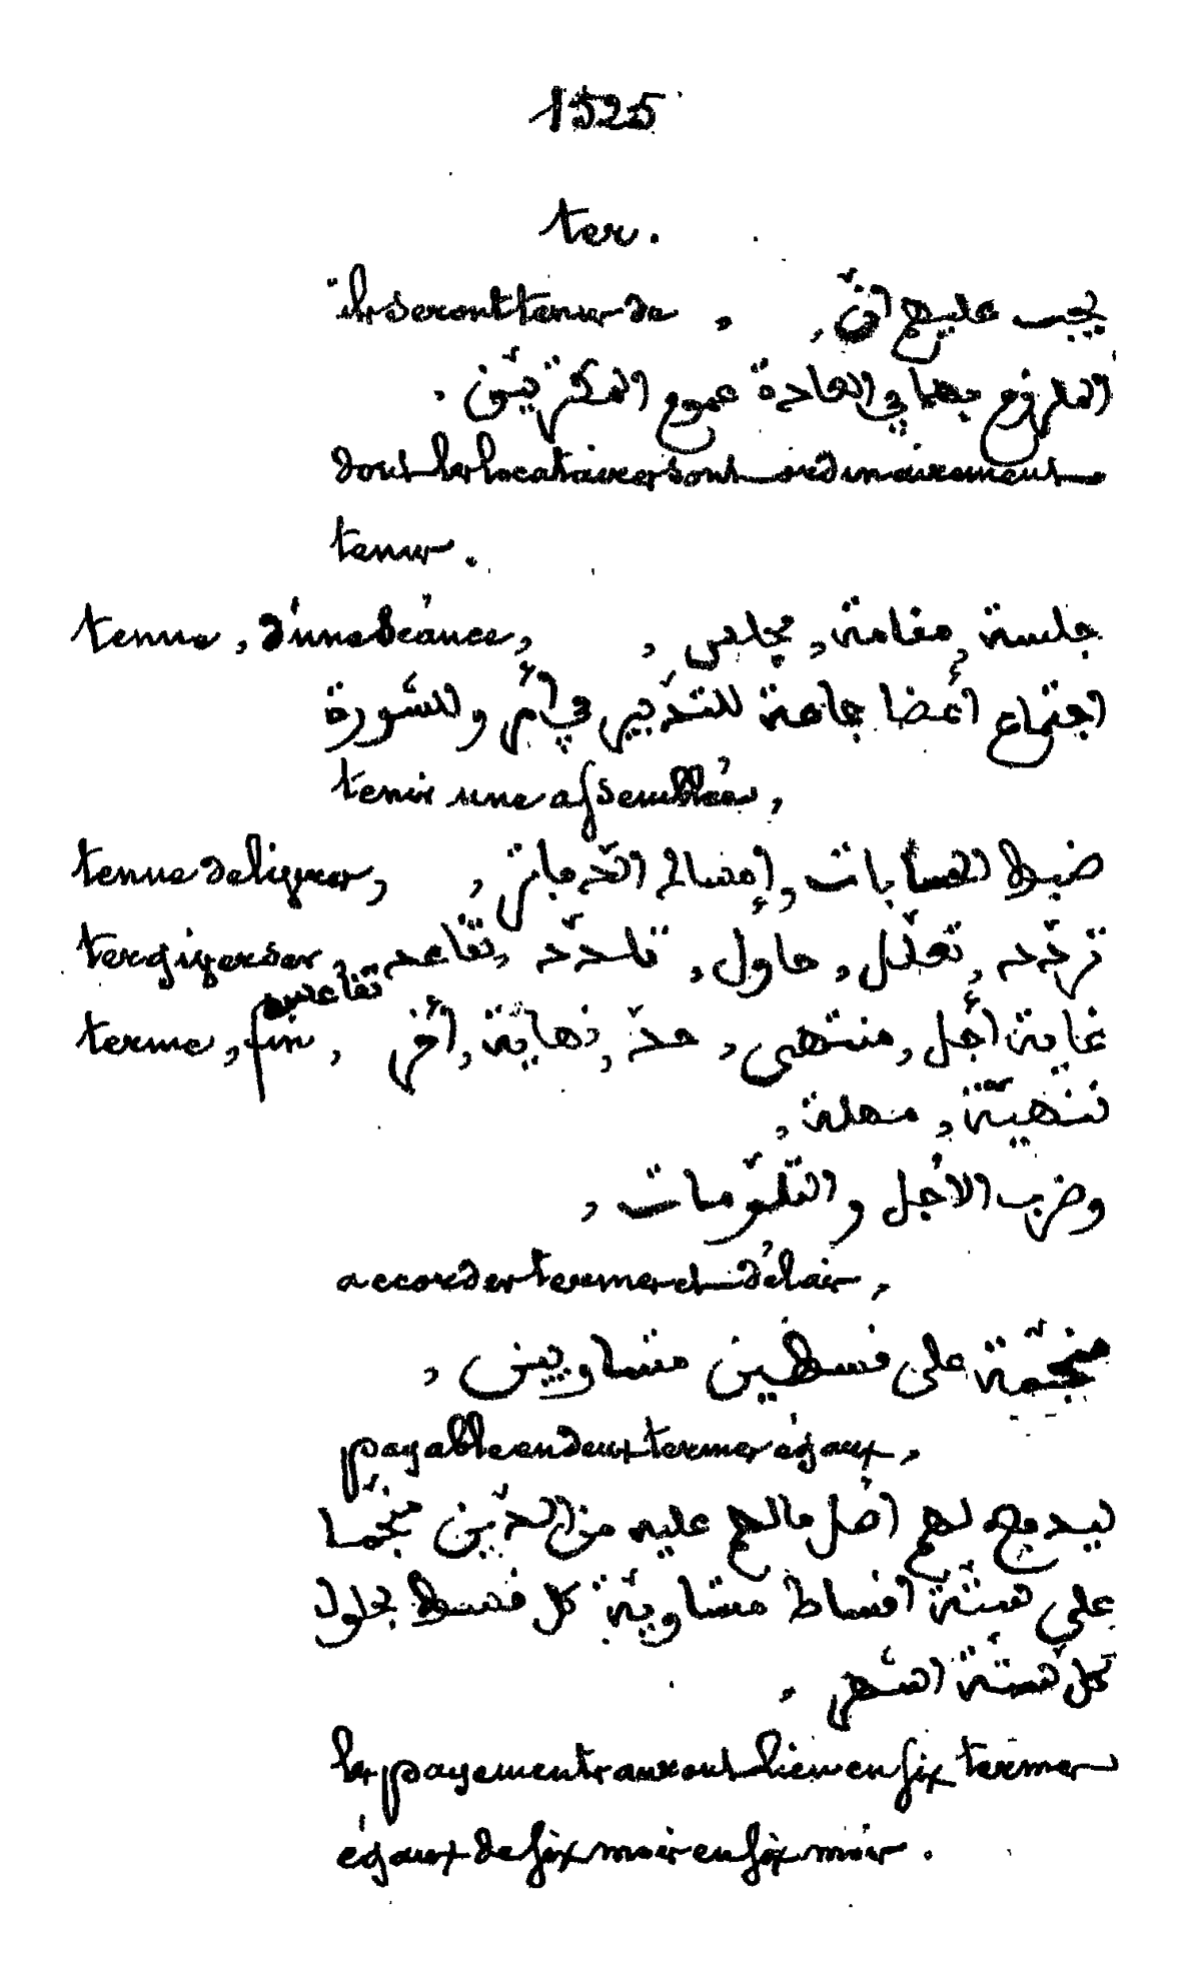 1525
ter.
ils seront tenus de , يجب عليهم انّ,
الملزوم بهما في العادة عموم المكتريّين ,
dont les locataires sont ordinairement
tenus.
tenue, d'une séance, جلسة, مقامة, مجلس ,
اجتماع أعضا جماعة للتدبير في أمر وللشورة
tenir une assemblée,
tenue de livres, ضبط الحسابات, إمساك
tergiverser, تردّد, تعلّل, حاول, تلدّد, تقاعد
تقاعس
terme, fin, غاية أجل, منتهى, حدّ, نهاية, آخر ,
تنهيّة, مهلة,
وضرب الاجل والتلوّمات ,
accorder termes et délais,
منجّمة على قسطين متساويين ,
payable en deux termes égaux,
ليدفع لهم اصل مالهم عليه من الدّين منجّما
على ستّة اقساط متساويّة كل قسط بحلول
كلّ ستّة اشهر ,
les payements auront lieu en six termes
égaux de six mois en six mois.